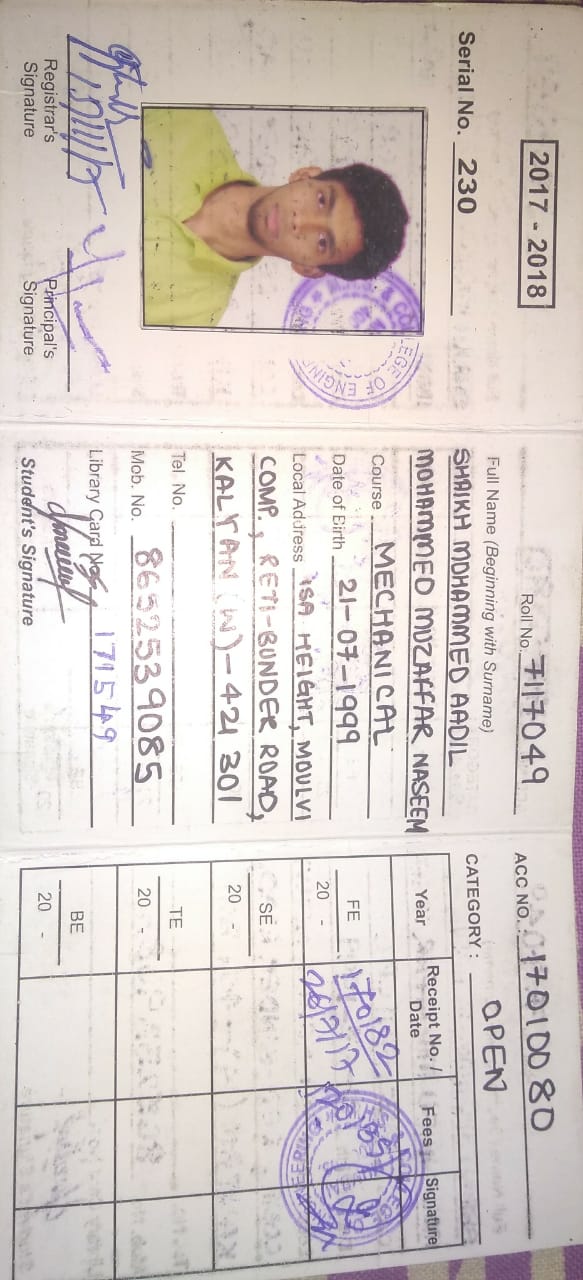 2017 - 2018
Serial No. 230
EGE OF ENGINE
Registrar's
Signature
Principal's
Signature
Roll No. 7117049
Full Name (Beginning with Surname)
SHAIKH MOHAMMED AADIL
MOHAMMED MUZAFFAR NASEEM
Course MECHANICAL
Date of Birth 21-07-1999
Local Address ISA HEIGHT, MOULVI
COMP., RETI-BUNDER ROAD,
KALYAN (W)-421 301
Tel No.
Mob. No. 8652539085
Library Card No. 171549
Student's Signature
ACC NO.: 17010080
CATEGORY: OPEN
Year Receipt No. / Date Fees Signature
FE 170182
20 - 26/9/17
SE
20 -
TE
20 -
BE
20 -